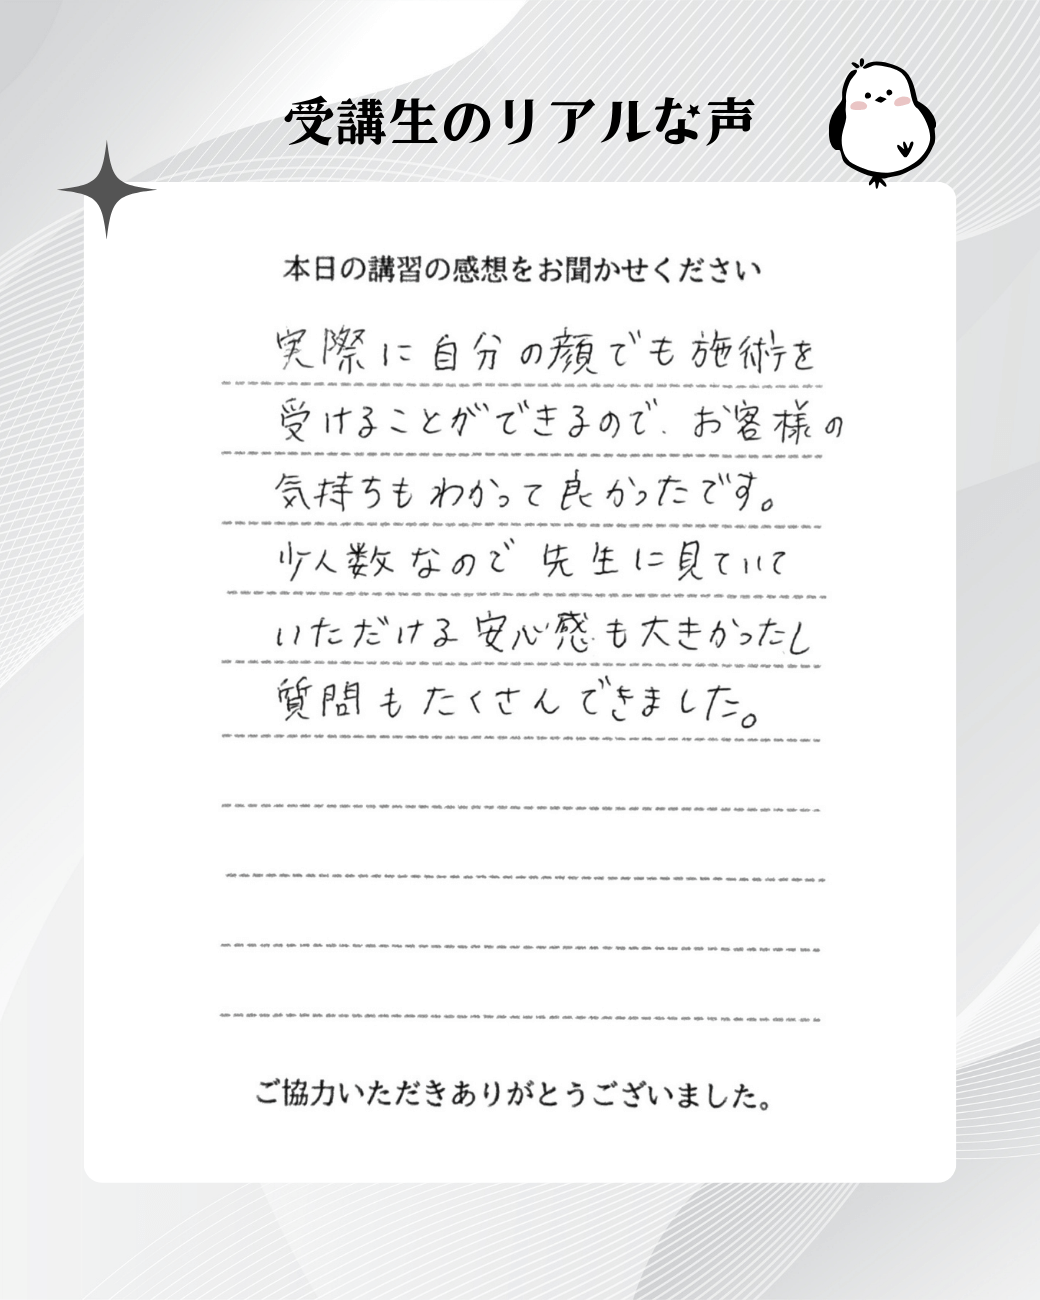 受講生のリアルな声
本日の講習の感想をお聞かせください
実際に自分の顔でも施術を
受けることができるので、お客様の
気持ちもわかって良かったです。
少人数なので先生に見ていて
いただける安心感も大きかったし
質問もたくさんできました。
ご協力いただきありがとうございました。